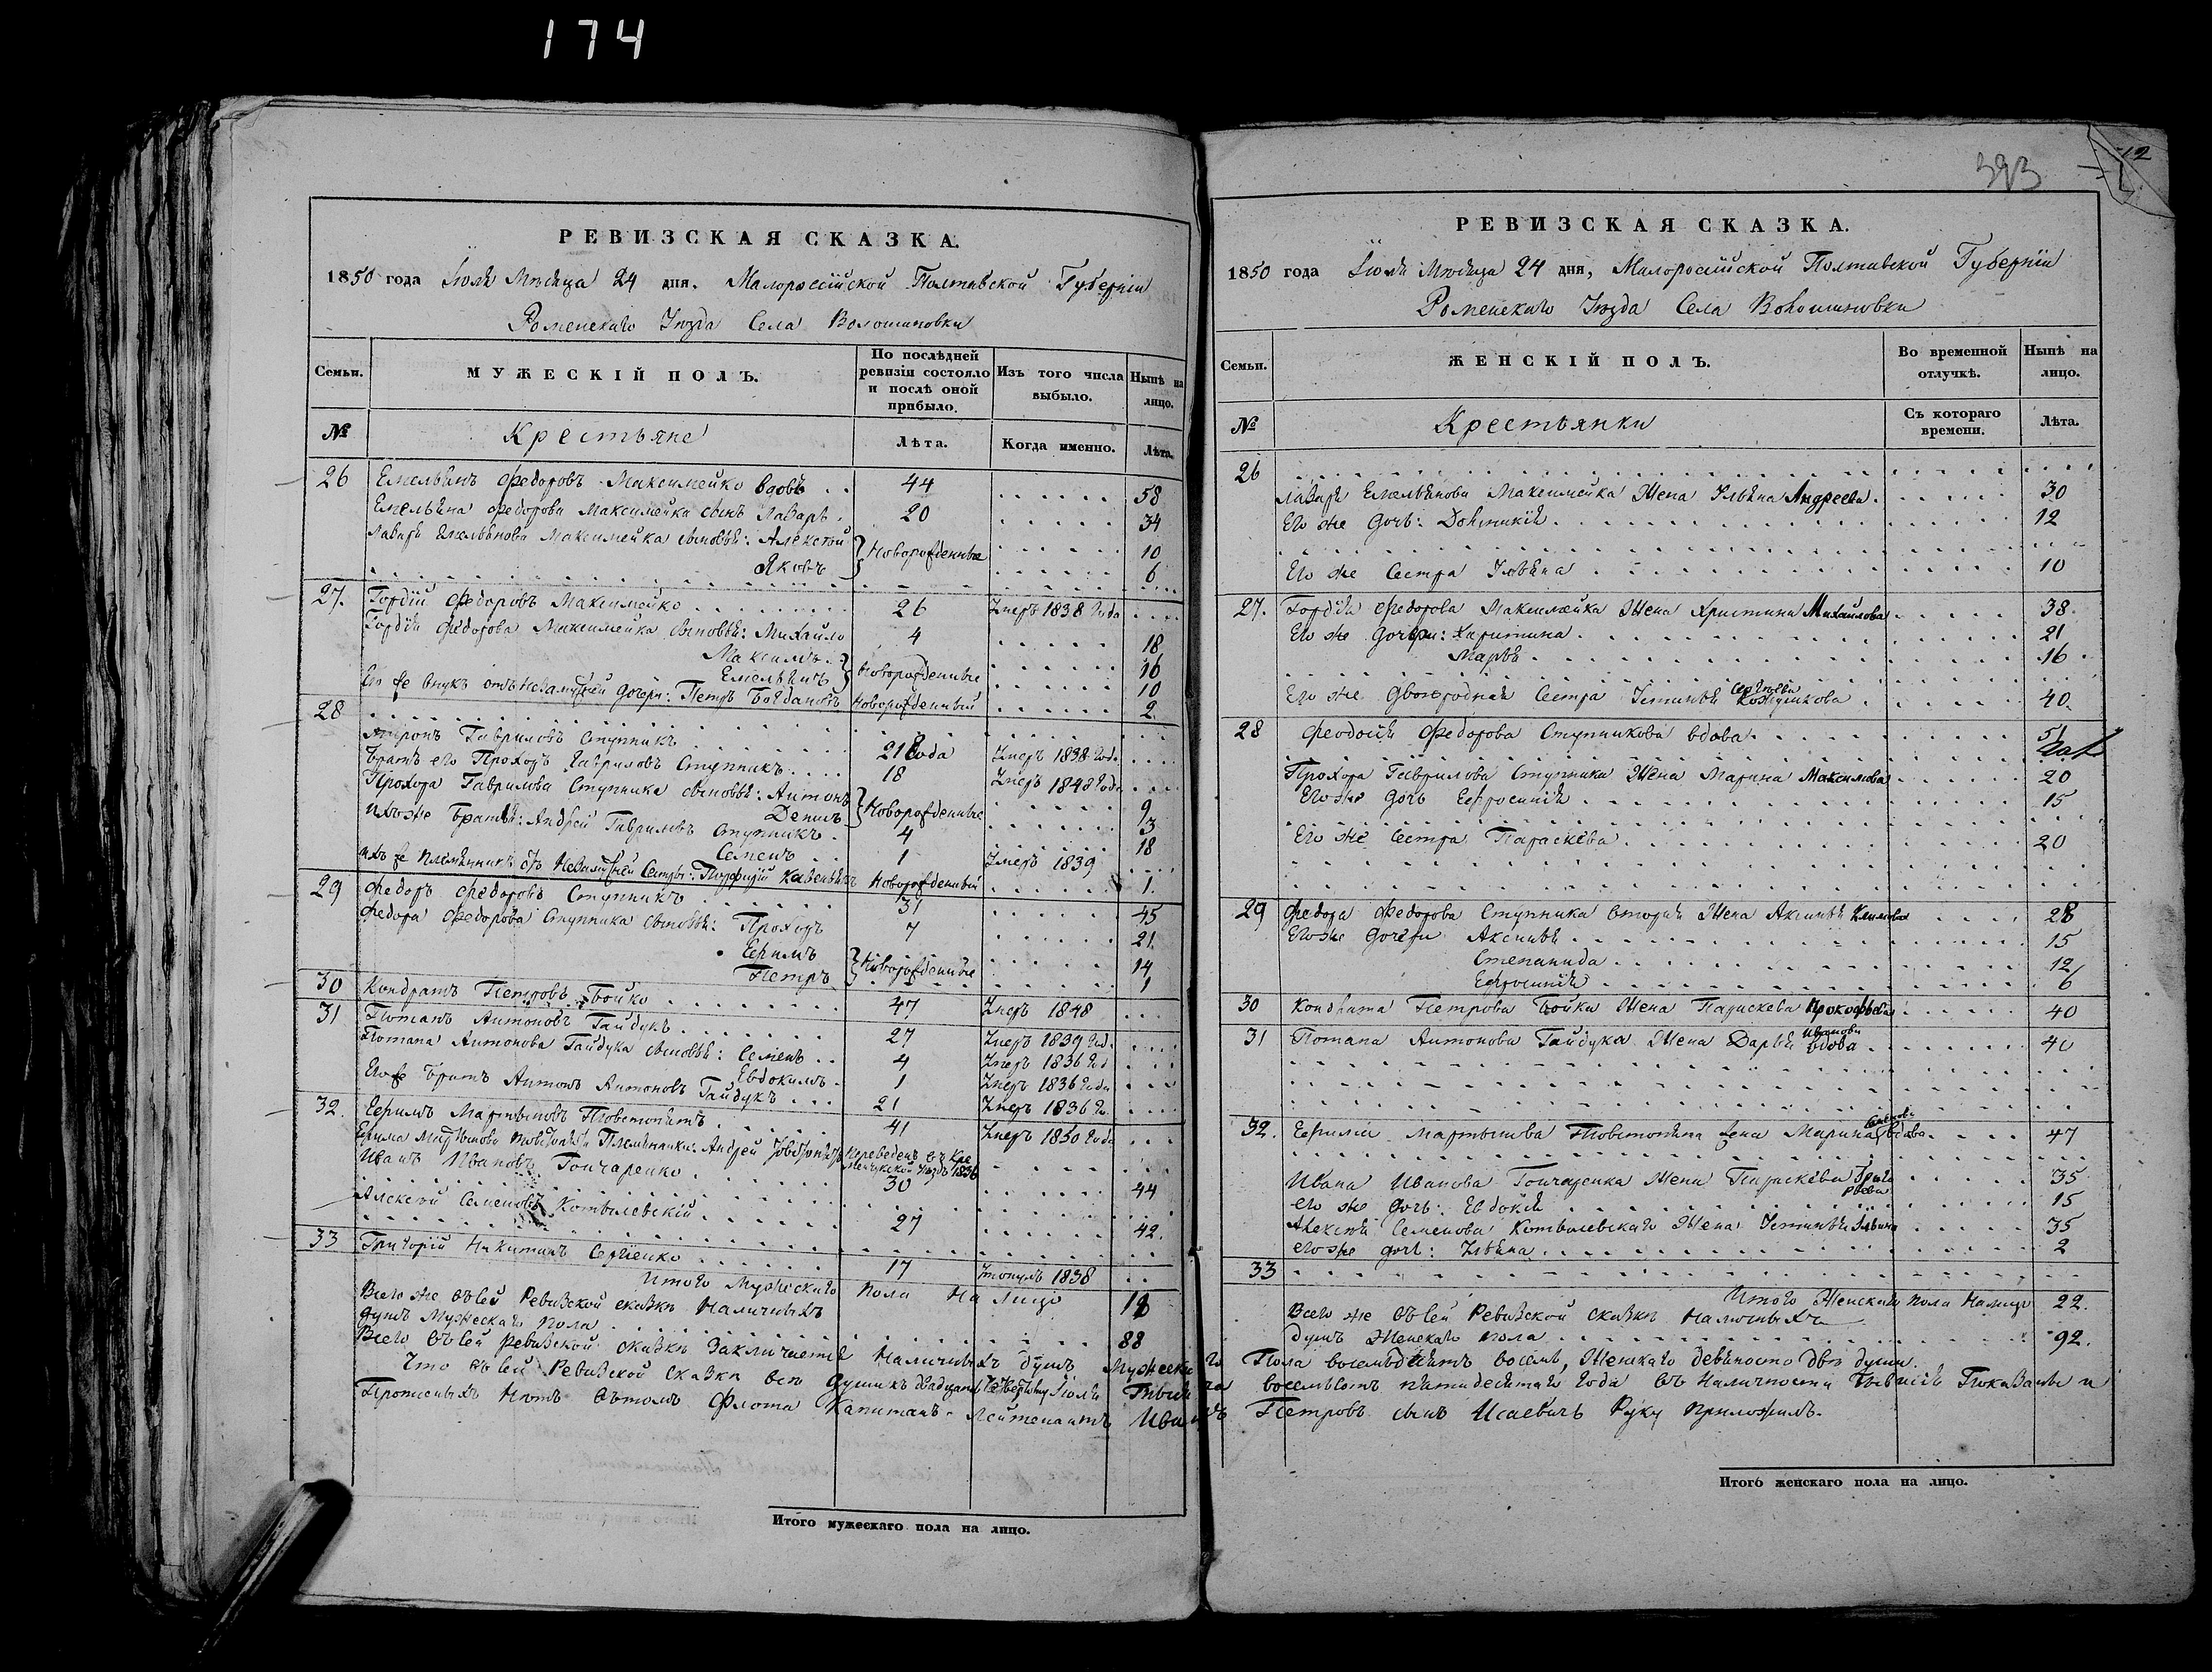 174
РЕВИЗСКАЯ СКАЗКА.
1850 года Іюля Мѣсяца 24 дня, Малороссійской Полтавской Губерніи
Роменскаго Уѣзда Села Волошиновки
Семьи.
МУЖЕСКІЙ ПОЛЪ.
По послѣдней ревизіи состояло и послѣ оной прибыло.
Изъ того числа выбыло.
Нынѣ на лицо.
№ Крестьяне Лѣта. Когда именно. Лѣта.
26 Емельянъ Федоровъ Максимейко вдовъ 44 58
Емельяна Федорова Максимейка сынъ Лазарь 20 34
Лазаря Емельянова Максимейка сыновья: Алексѣй Новорожденные 10
Яковъ 6
27. Гордій Федоровъ Максимейко 26 Умеръ 1838 года
Гордія Федорова Максимейка сыновья: Михайло 4 18
Максимъ Новорожденные 16
Емельянъ 10
Его же внукъ отъ незамужней дочери: Петръ Богдановъ Новорожденный 2
28
Миронъ Гавриловъ Ступникъ 21 года Умеръ 1838 года
Братъ его Прохоръ Гавриловъ Ступникъ 18 Умеръ 1848 года
Прохора Гаврилова Ступника сыновья: Антонъ Новорожденные 9
Денисъ 3
Ихъ же братья: Андрей Гавриловъ Ступникъ 4 18
Семенъ 1 Умеръ 1839
Ихъ же племянникъ отъ незамужней сестры: Новорожденный 1
29 Федоръ Федоровъ Ступникъ 31 45
Федора Федорова Ступника сыновья: Прохоръ 7 21
Ефимъ Новорожденные 14
Петръ 1
30 Кондратъ Петровъ Бойко 47 Умеръ 1848
31 Потапъ Антоновъ Гайдукъ 27 Умеръ 1839 год.
Потапа Антонова Гайдука сыновья: Семенъ 4 Умеръ 1836 год
Евдокимъ 1 Умеръ 1836 года
Его же братъ Антонъ Антоновъ Гайдукъ 21 Умеръ 1836 го.
32. Ефимъ Мартыновъ Товстопятъ 41 Умеръ 1850 года
Ефима Мартынова Товстопята племянникъ: Андрей Товстопятъ Переведенъ въ Кременчукской Уѣздъ 1836
Иванъ Ивановъ Гончаренко 30 44
Алексѣй Семеновъ Котвилевскій 27 42.
33 Григорій Никитинъ Сергіенко 17 Утонулъ 1838
Итого Мужескаго Пола На Лицо 18
Всего же въ сей Ревизской сказкѣ наличныхъ
душъ мужескаго пола 88
РЕВИЗСКАЯ СКАЗКА.
1850 года Іюля Мѣсяца 24 дня, Малороссійской Полтавской Губерніи
Роменскаго Уѣзда Села Волошиновки
393
Семьи.
ЖЕНСКІЙ ПОЛЪ.
Во временной отлучкѣ.
Нынѣ на лицо.
№ Крестьянки Съ котораго времени. Лѣта.
26
Лазаря Емельянова Максимейка Жена Ульяна Андреева 30
Его же дочь: Домникія 12
Его же Сестра Ульяна 10
27. Гордія Федорова Максимейка Жена Христина Михайлова 38
Его же дочери: Харитина 21
Марья 16
Его же двоюродная Сестра Устинья Сергѣева Кожушкова 40.
28 Феодосія Федорова Ступникова вдова 51
Прохора Гаврилова Ступника Жена Марина Максимова 20
Его же дочь Ефросинія 15
Его же Сестра Параскева 20
29 Федора Федорова Ступника вторая Жена Аксинья Климова 28
Его же дочери Аксинья 15
Степанида 12
Ефросинія 6
30 Кондрата Петрова Бойка Жена Параскева Прокофьева 40
31 Потапа Антонова Гайдука Жена Дарья Иванова вдова 40
32. Ефима Мартынова Товстопята жена Марина вдова 47
Ивана Иванова Гончаренка Жена Параскева Григорьева 35
его же дочь: Евдокія 15
Алексѣя Семенова Котвилевскаго Жена Устинья Ильина 35
его же дочь: Ульяна 2
33
Итого Женскаго пола Налицо 22.
Всего же въ сей Ревизской сказкѣ наличныхъ
душъ Женскаго пола 92.
Всего въ сей ревизской сказкѣ заключается наличныхъ душъ Мужескаго Пола восемьдесятъ восемь, Женскаго девяносто двѣ души.
Что въ сей Ревизской Сказкѣ всѣ души къ двадцать четвертому Іюля тысяча восемьсотъ пятидесятаго года въ наличности бывшія показаны и
Прописныхъ нѣтъ въ томъ Флота Капитанъ-Лейтенантъ Иванъ Петровъ сынъ Исаевичъ руку приложилъ.
Итого мужескаго пола на лицо.
Итого женскаго пола на лицо.